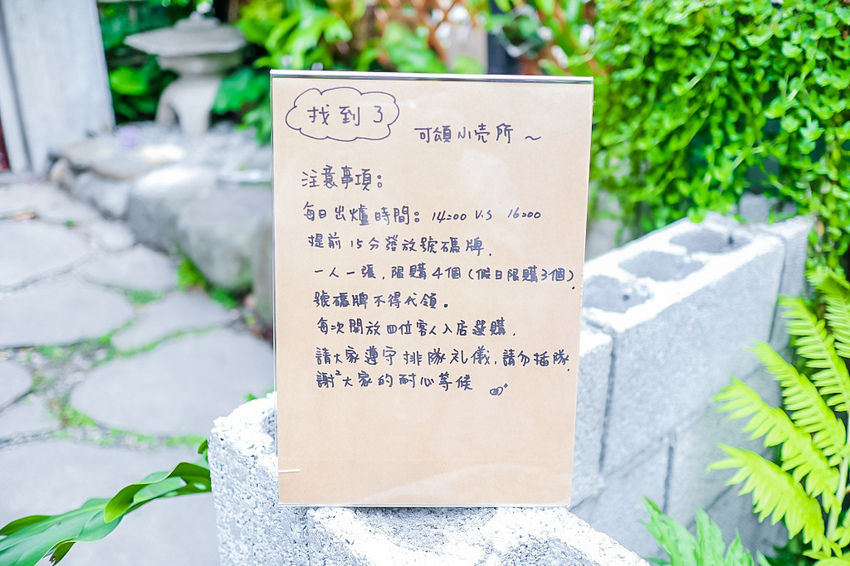 找到了
可頌小売所～
注意事項：
每日出爐時間：14:00 V.S 16:00
提前15分發放號碼牌.
一人一張.限購4個(假日限購3個)
號碼牌不得代領。
每次開放四位客人入店選購.
請大家遵守排隊礼儀.請勿插隊.
謝²大家的耐心等候